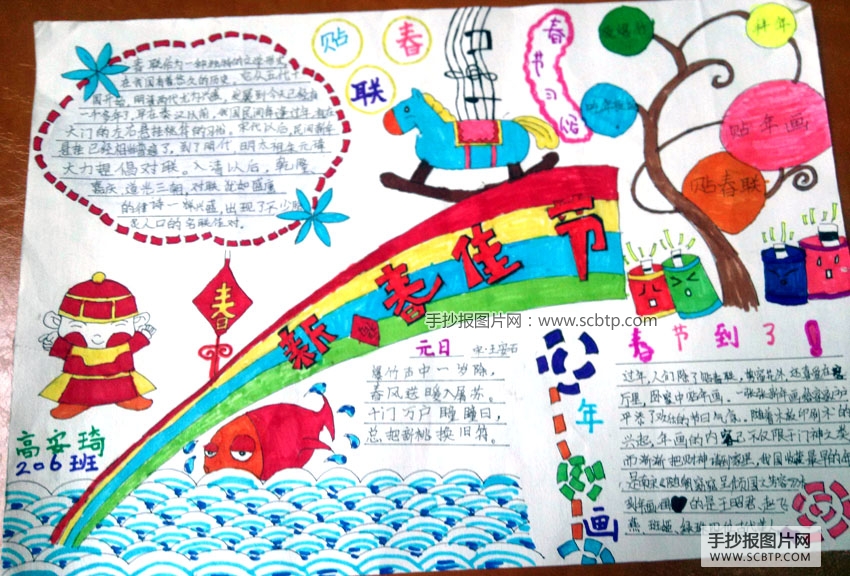 贴
春
联
春节习俗
放爆竹
拜年
贴年画
贴春联
春联作为一种独特的文学形式,
在我国有着悠久的历史。它从五代十
国开始,明清两代尤为兴盛,发展到今天已经有
一千多年了。早在秦汉以前,我国民间每逢过年,有在
大门的左右悬挂桃符的习俗。宋代以后,民间新年
悬挂
已经相当普遍了,到了明代,明太祖朱元璋
大力提倡对联。入清以后,乾隆、
嘉庆、道光三朝,对联就如盛唐
的律诗一样兴盛,出现了不少脍
炙人口的名联佳对。
春
新春佳节
手抄报图片网:www.scbtp.com
元日
宋·王安石
爆竹市中一岁除,
春风送暖入屠苏。
千门万户瞳瞳日,
总把新桃换旧符。
高安琦
206班
年画
春节到了!
过年,人们除了贴春联,
还喜爱在客
厅里、卧室中贴年画。一张张新年画给家家户户
平添了欢欣的节日气氛。随着木板印刷术的
兴起,年画的内容已不仅限于门神之类
而渐渐把财神请到家里,我国收藏最早的年
的是王昭君、赵飞
燕、班姬、绿珠
手抄报图片网
WWW.SCBTP.COM